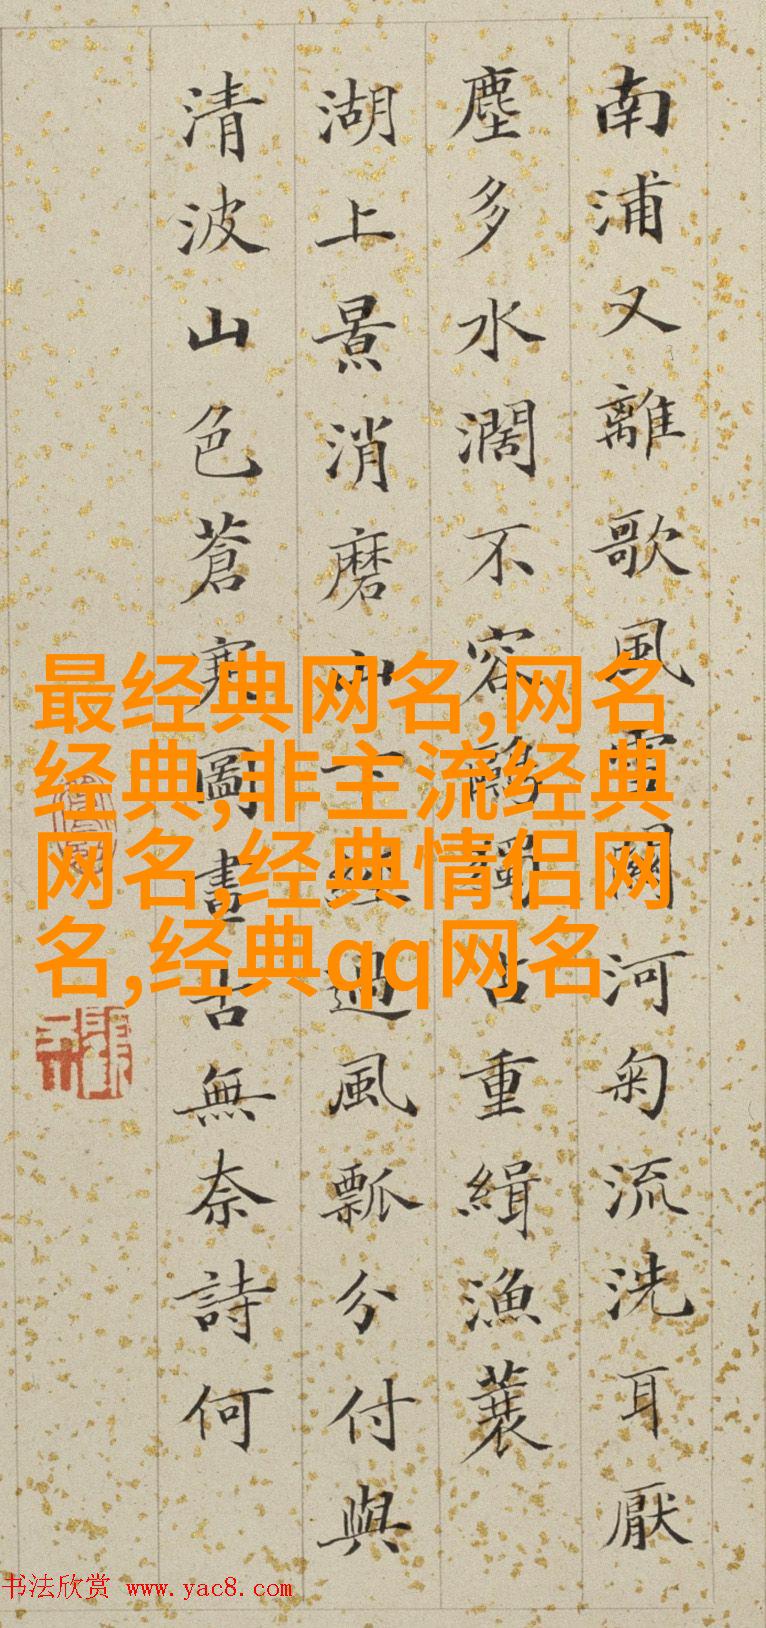 南浦又離歌風雪關河匊流洗耳厭
塵多水濶不容鷗獨占重緝漁蓑
湖上景消磨山下經過風瓢分付與
清波山色蒼寒圖畫古無奈詩何
最经典网名,网名
经典,非主流经典
网名,经典情侣网
名,经典qq网名
书法欣赏 www.yac8.com